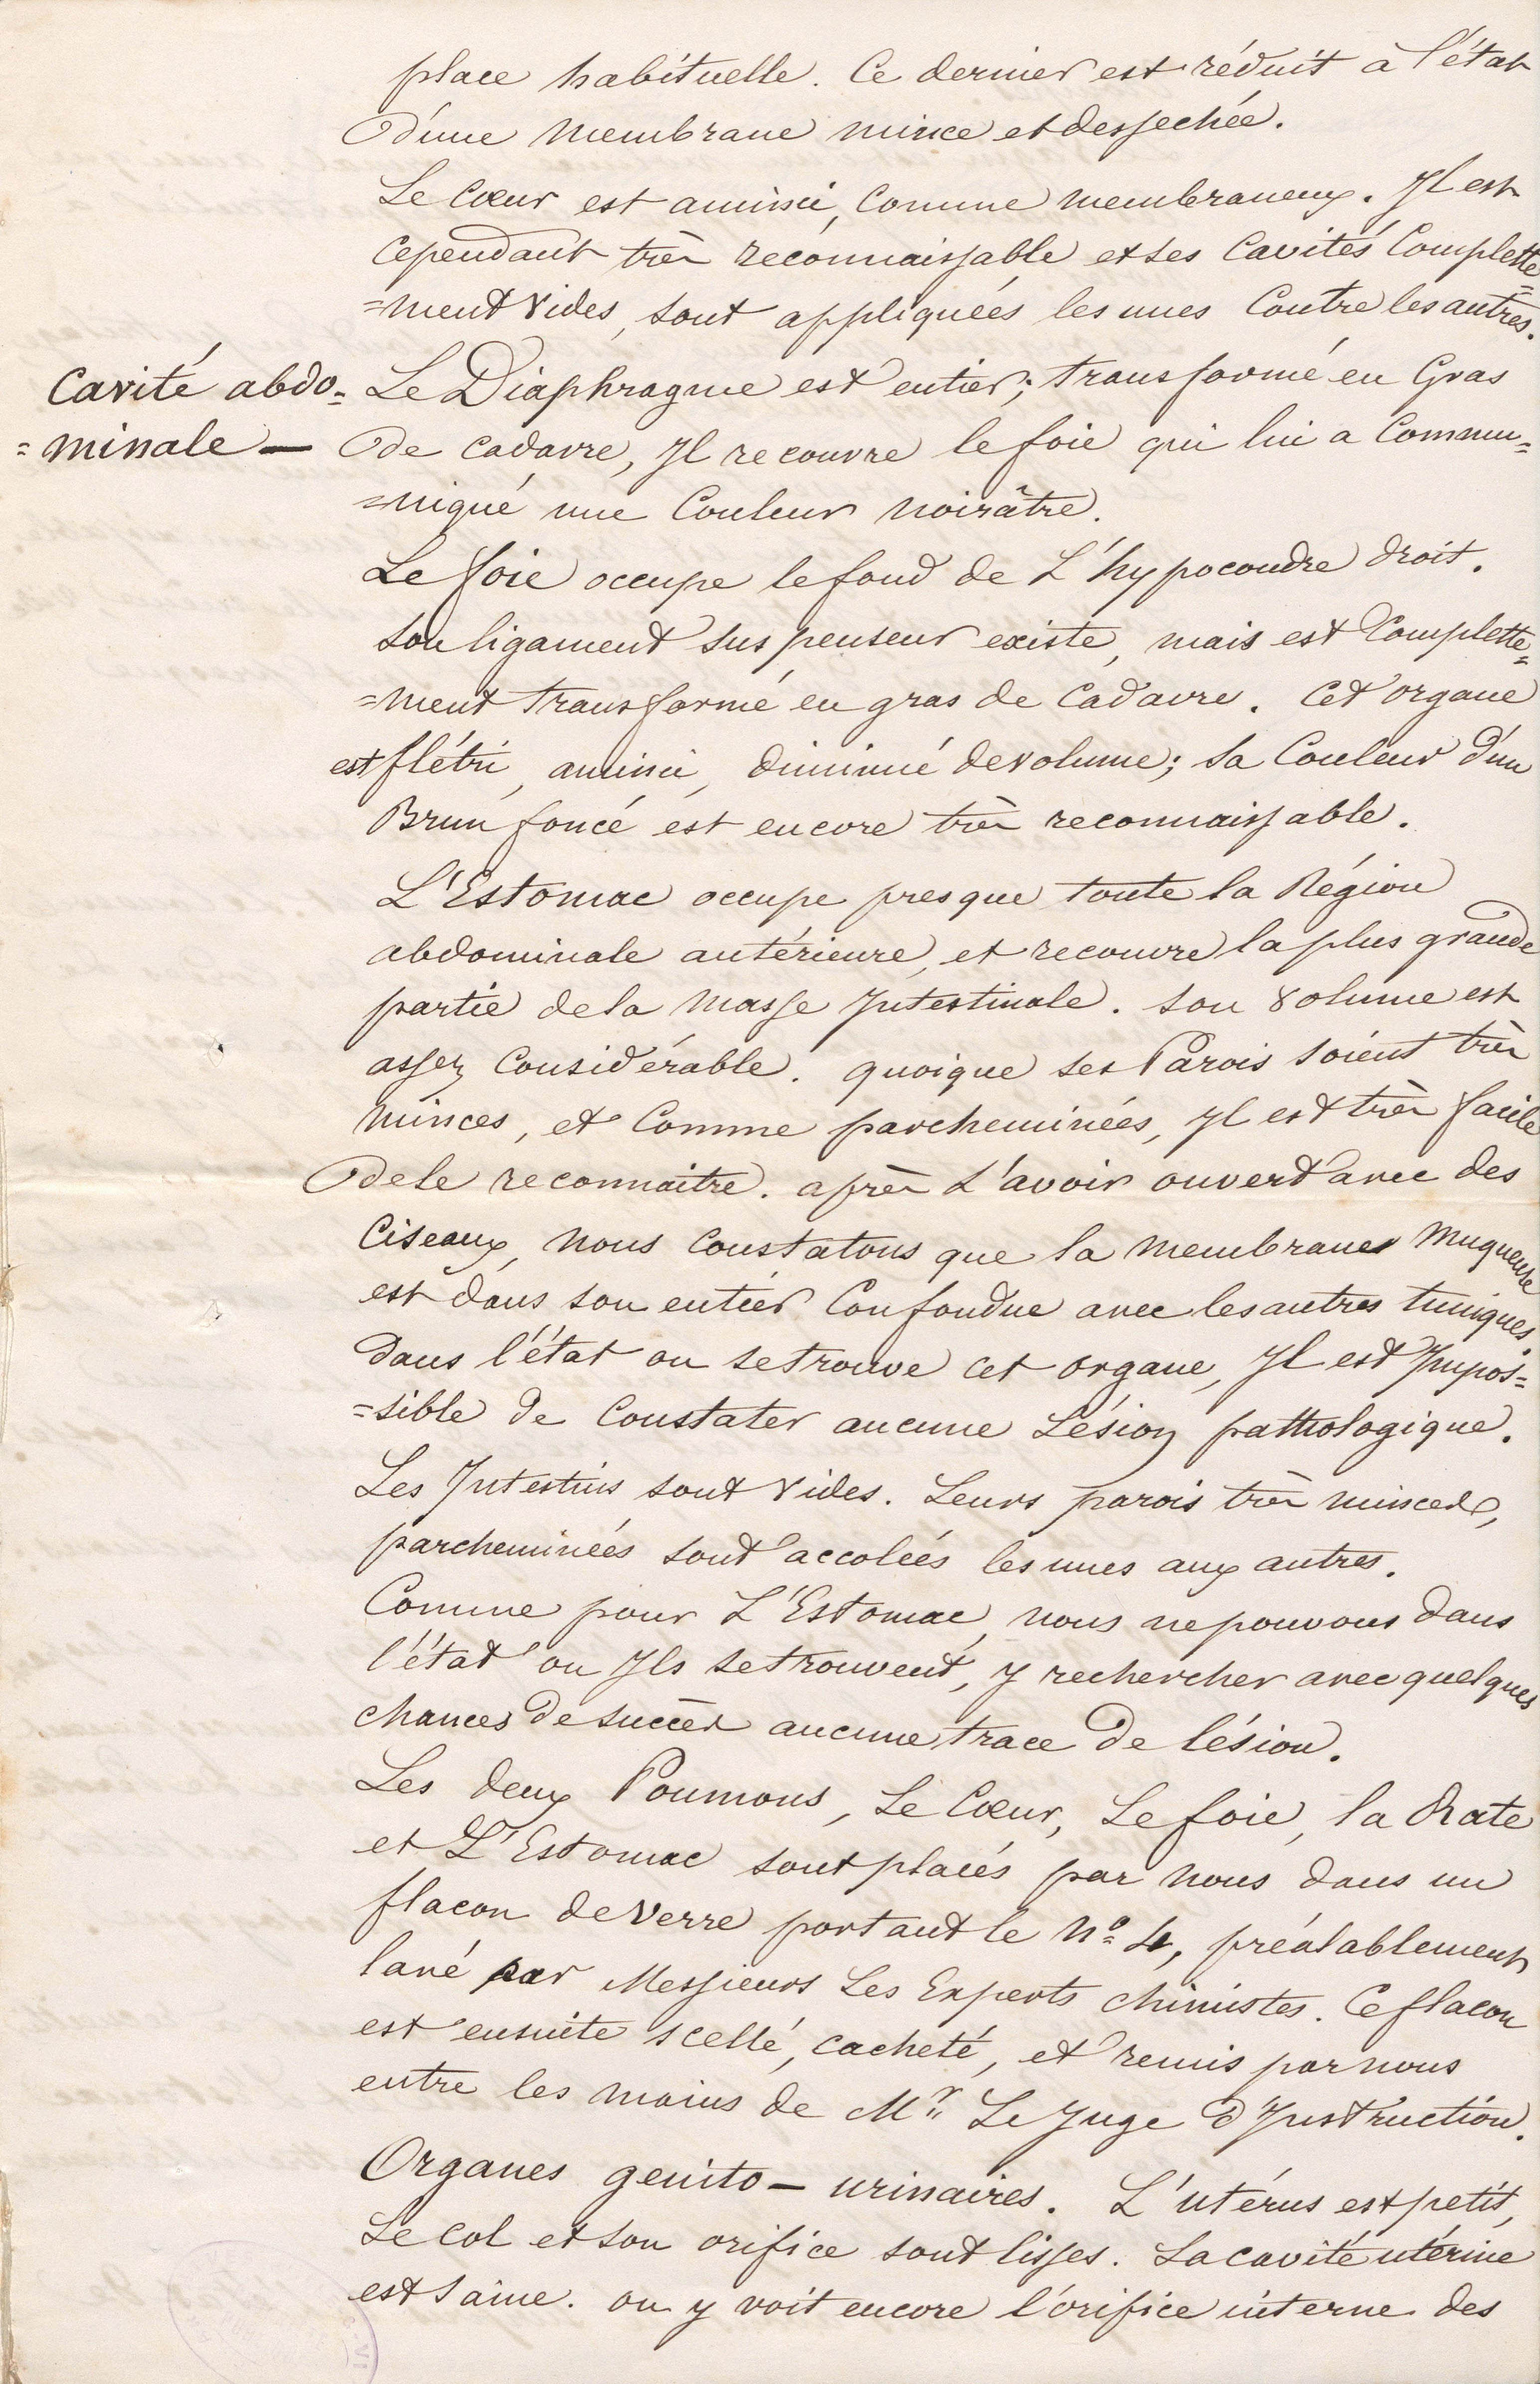 place habituelle. Ce dernier est réduit à l'état
d'une membrane mince et dessechée.
Le Cœur est aminci, Comme membraneux. Il est
cependant très reconnaissable et ses Cavités Complette
=ment vides, sont appliquées les unes Contre les autres.
Cavité abdo=
=minale —
Le Diaphragme est entier; transformé en Gras
de cadavre, Il recouvre le foie qui lui a Commu=
=niqué une Couleur noirâtre.
Le foie occupe le fond de L'hypocondre droit.
Son ligament suspenseur existe, mais est Complette=
=ment transformé en gras de Cadavre. Cet organe
est flétri, aminci, diminué de volume; sa Couleur d'un
Brun foncé est encore très reconnaissable.
L'Estomac occupe presque toute la Région
abdominale antérieure, et recouvre la plus grande
partie de la masse Intestinale. Son volume est
assez Considérable. quoique ses Parois soient très
minces, et Comme parcheminées, Il est très facile
de le reconnaitre. après L'avoir ouvert avec des
Ciseaux, nous Constatons que la membrane muqueuse
est dans son entier Confondue avec les autres tuniques.
Dans l'état ou se trouve cet organe, Il est Impos=
=sible de Constater aucune Lésion pathologique.
Les Intestins sont vides. Leurs parois très minces,
parcheminées sont accolées les unes aux autres.
Comme pour L'Estomac, nous ne pouvons dans
l'état ou Ils se trouvent, y rechercher avec quelques
chances de succès aucune trace de lésion.
Les deux Poumons, Le Cœur, Le foie, la Rate
et L'Estomac sont placés par nous dans un
flacon de verre portant le No 4, préalablement
lavé par Messieurs Les Experts chimistes. Ce flacon
est ensuite scellé, cacheté, et remis par nous
entre les mains de Mr Le Juge d'Instruction.
Organes genito — urinaires. L'utérus est petit,
Le Col et son orifice sont lisses. La cavité utérine
est saine. on y voit encore l'orifice interne des